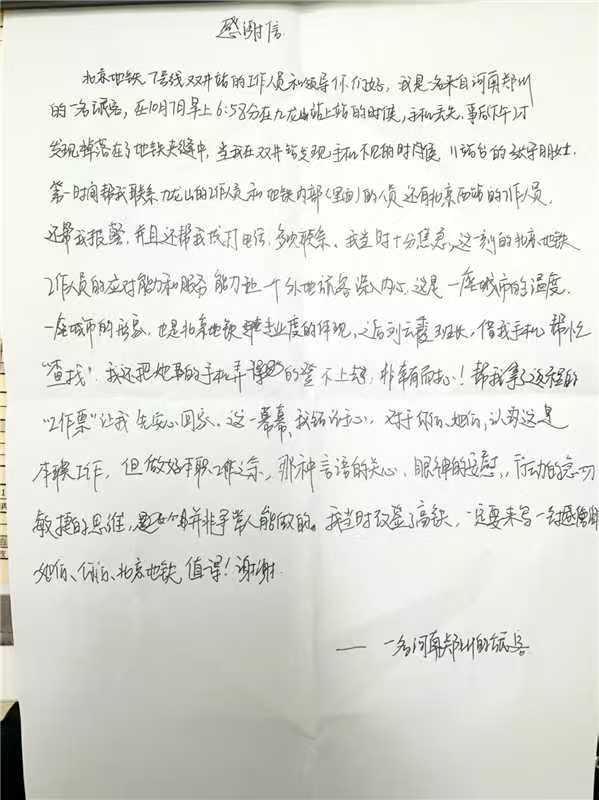 感谢信
北京地铁7号线双井站的工作人员和领导你们好，我是一名来自河南郑州
的一名旅客，在10月7日早上6:58分在九龙山站上站的时候，手机丢失，事后
发现掉落在了地铁夹缝中，当我在双井站发现手机不见的时候，站台的
第一时间帮我联系九龙山的工作人员和地铁内部(里面)的人员还有北京西站的工作人员.
还帮我报警，并且还帮我找打电话，多次联系、我当时十分焦急，这一刻的北京地铁
工作人员的应对能力和服务能力让一个外地旅客深入内心，这是一座城市的温度.
一座城市的形象，也是北京地铁专业度的体现，之后刘 班长，借我手机帮忙
“查找”，我还把她的手机弄的登不上去，非常有耐心！帮我拿了返程的
“工作票”让我先安心回家，这一幕幕，我铭记于心，对于你们、她们，认为这是
本职工作，但做好本职工作之余，那种言语的关心、眼神的安慰，行动的急切
敏捷的思维，并非寻常人能做的。我当时改签了高铁，一定要来写一封感谢
她们、你们、北京地铁 值得！谢谢
—— 一名河南郑州的旅客